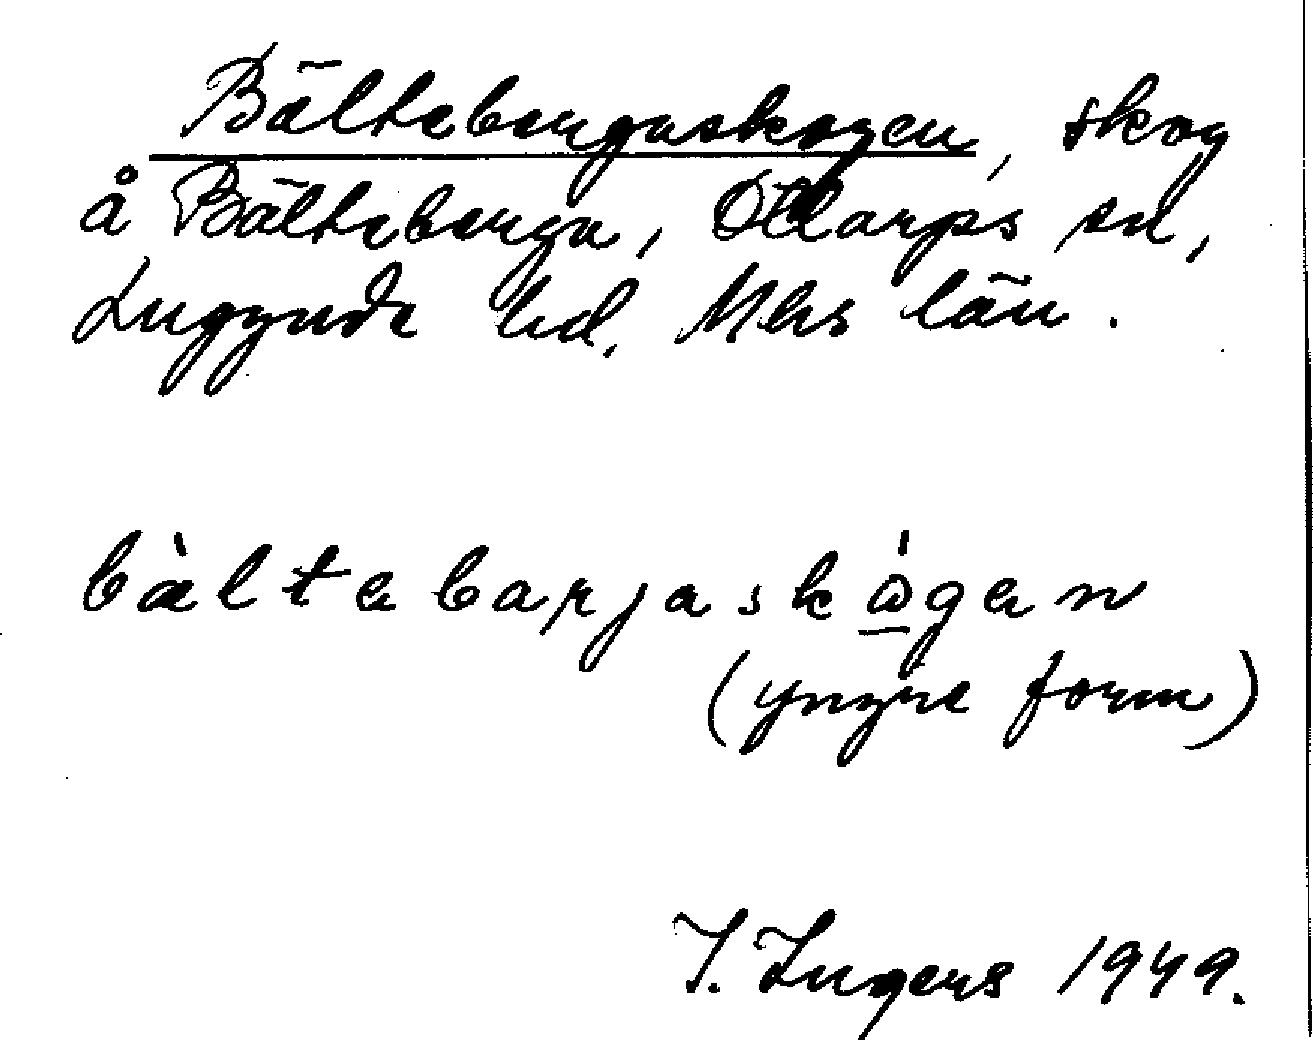 Bältebergaskogen, skog
å Bälteberga, Ottarps sn,
Luggude hd. Mhs län.
bàltebarjaskógen
(yngre form)
I. Ingers 1949.